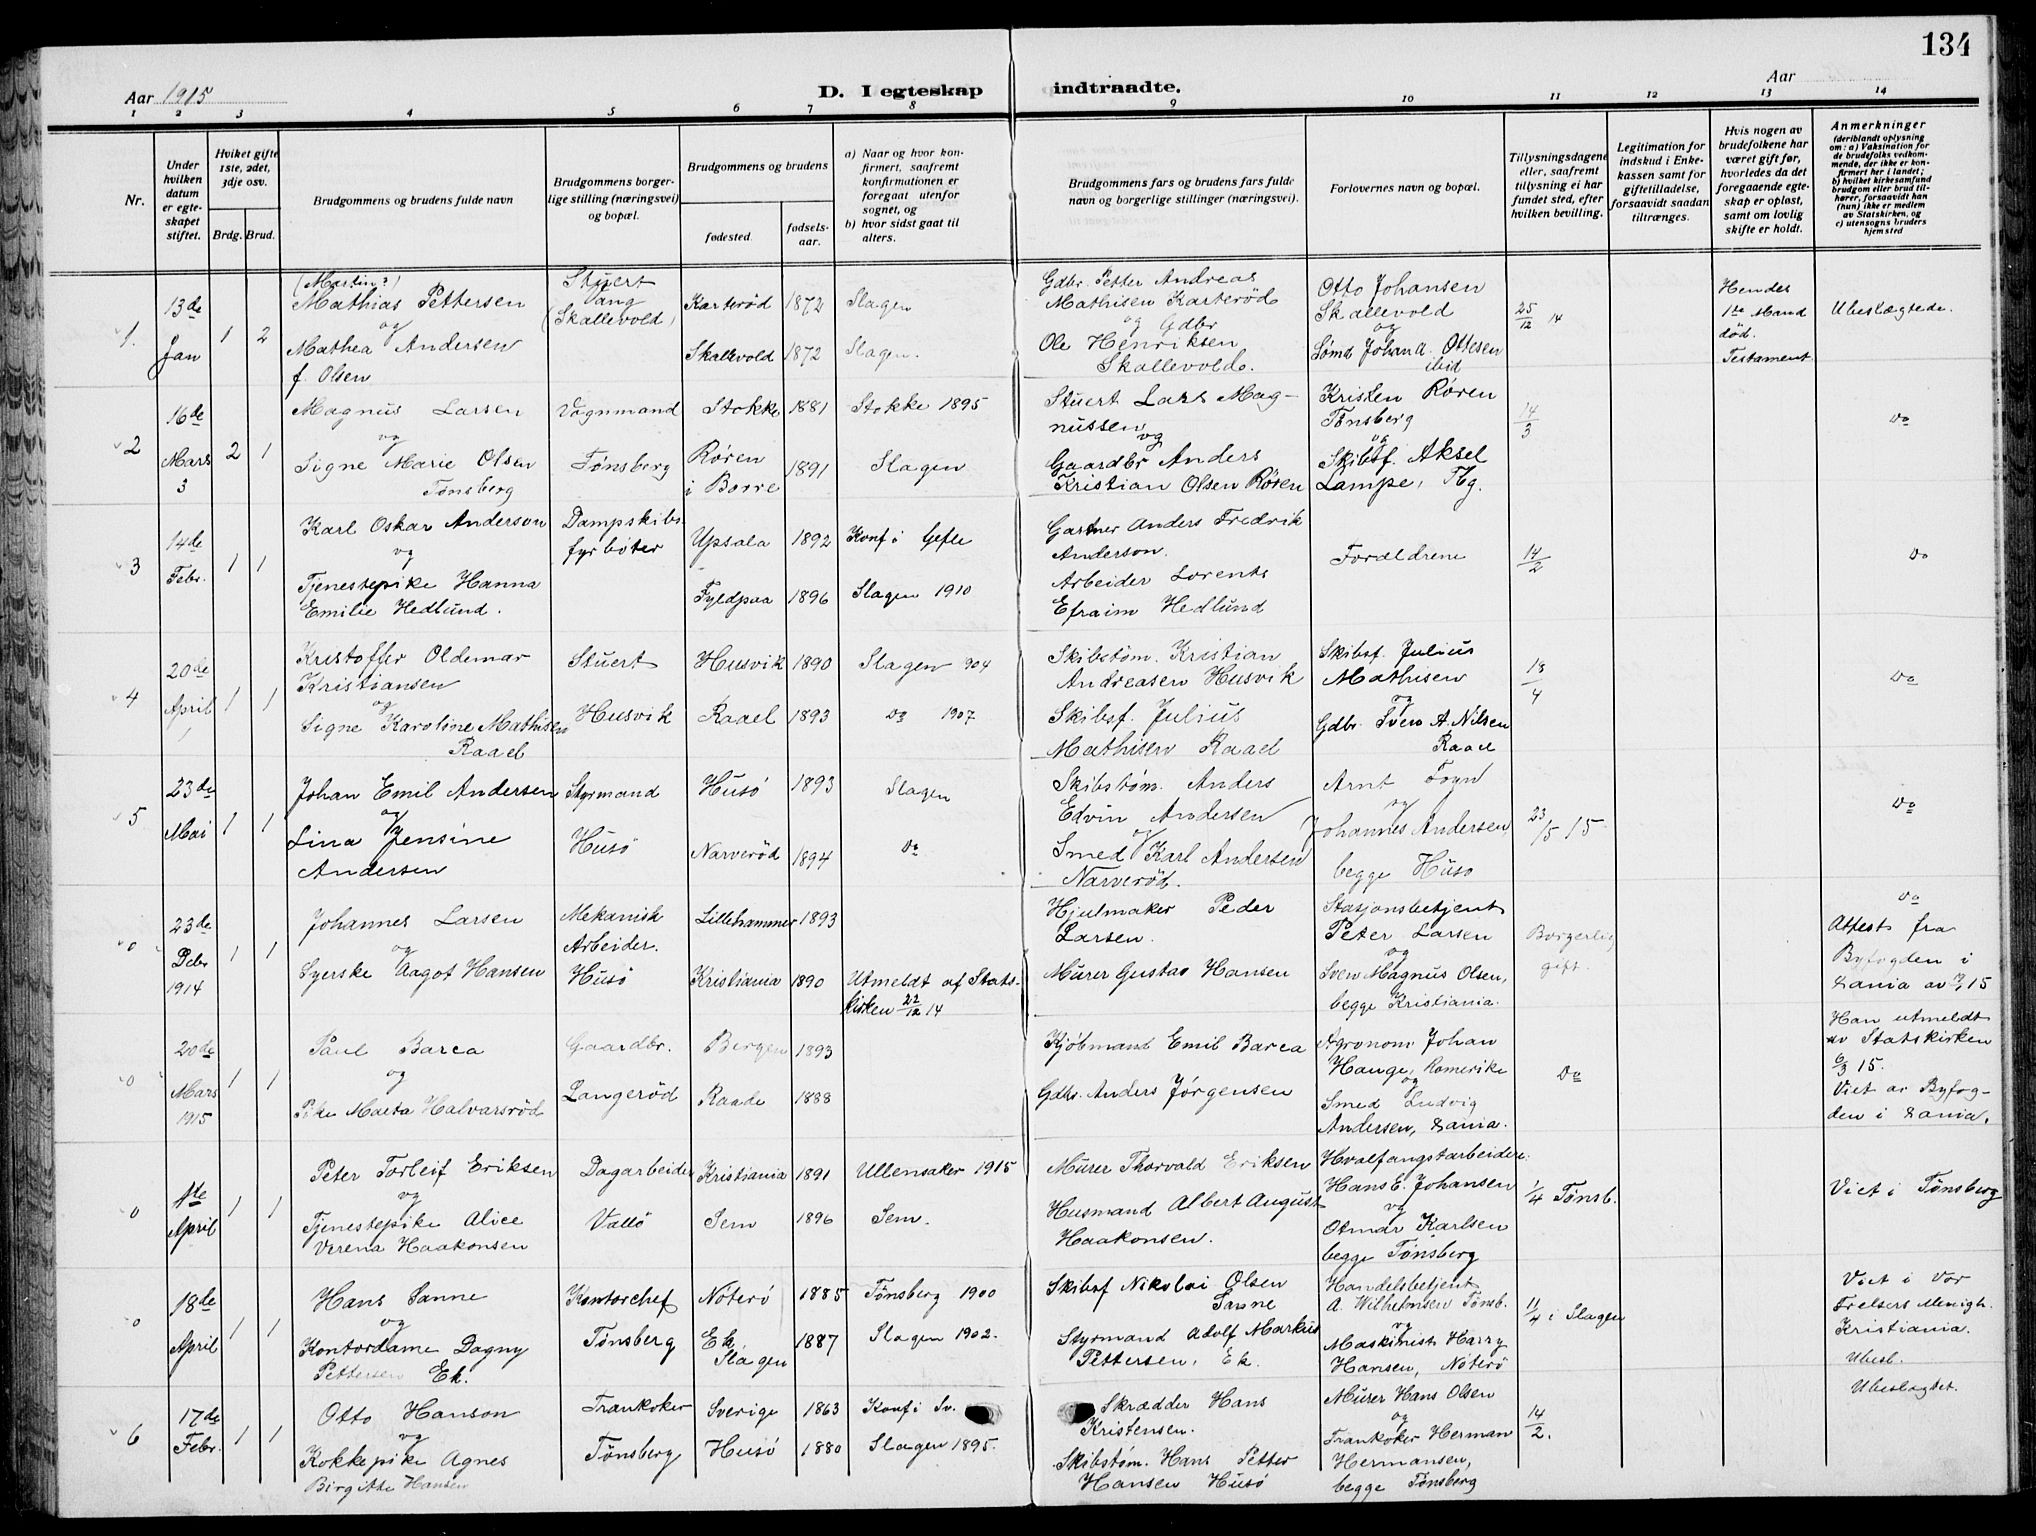 134
Aar 1915
D. I egteskap
indtraadte.
Aar
1 2 3 4 5 6 7 8 9 10 11 12 13 14
Nr.
Under hvilken datum er egteskapet stiftet.
Hviket gifte 1ste, 2det, 3dje osv.
Brdg. Brud.
Brudgommens og brudens fulde navn
Brudgommens borgerlige stilling (næringsvei) og bopæl.
Brudgommens og brudens
fødested.
fødselsaar.
a) Naar og hvor konfirmert, saafremt konfirmationen er foregaat utenfor sognet, og
b) hvor sidst gaat til alters.
Brudgommens fars og brudens fars fulde navn og borgerlige stillinger (næringsvei).
Forlovernes navn og bopæl.
Tillysningsdagene eller, saafremt tillysning ei har fundet sted, efter hvilken bevilling.
Legitimation for indskud i Enkekassen samt for giftetilladelse, forsaavidt saadan tiltrænges.
Hvis nogen av brudefolkene har været gift før, hvorledes da det foregaaende egteskap er opløst, samt om lovlig skifte er holdt.
Anmerkninger (deriblandt oplysning om: a) Vaksination for de brudefolks vedkommende, der ikke er konfirmert her i landet; b) hvilket kirkesamfund brudgom eller brud tilhører, forsaavidt han (hun) ikke er medlem av Statskirken, og c) utensogns bruders hjemsted
1. 13de Jan 1 2
(Martin?)
Mathias Pettersen
og
Mathea Andersen
f. Olsen
Stuert
(Skallevold)
Karterød 1872 Slagen
Skallevold 1872 Slagen.
Gdbr. Petter Andreas
Mathisen Karterød
og Gdbr
Ole Henriksen
Skallevold.
Otto Johansen
Skallevold
og
Johand. Ottesen
ibid
25/12 14
Hendes
1ste Mand
død.
Testament
Ubeslægtede.
2 16de Mars 2 1
3
Magnus Larsen
og
Signe Marie Olsen
Tønsberg
Vognmand
Tønsberg
Stokke 1881 Stokke 1895
Røren
i Borre 1891 Slagen
Stuert Lars Mag-
nussen
og
Gaardbr Anders
Kristian Olsen Røren
Kristen Røren
Tønsberg
og
Skibsf. Aksel
Lampe, Tbg.
14/3
Do
3 14de Febr. 1 1
Karl Oskar Anderson
og
Tjenestepike Hanna
Emilie Hedlund.
Dampskibs
fyrbøter
Upsala 1892 Konf i Gefle
Fyldpaa 1896 Slagen 1910
Gartner Anders Fredrik
Anderson.
Arbeider Lorents
Efraim Hedlund
Forældrene
14/2
Do
4 20de April 1 1
Kristoffer Oldemar
Kristiansen
og
Signe Karoline Mathisen
Raael
Stuert
Husvik
Husvik 1890 Slagen 904
Raael 1893 Do 1907
Skibstøm. Kristian
Andreasen Husvik
Skibsf. Julius
Mathisen Raael
Skibsf. Julius
Mathisen
og
Gdbr. Sven A. Nilsen
Raael
18/4
Do
5 23de Mai 1 1
Johan Emil Andersen
og
Lina Jensine
Andersen
Styrmand
Husø
Husø 1893 Slagen
Narverød 1894 Do
Skibstøm. Anders
Edvin Andersen
og
Smed Karl Andersen
Narverød.
Arnt Foyn
og
Johannes Andersen,
begge Husø
23/5 15.
Do
0 23de Debr 1914 1 1
Johannes Larsen
og
Syerske Aagot Hansen
Mekanisk
Arbeider.
Husø
Lillehammer 1893
Kristiania 1890 Utmeldt af Stats-
kirken 22/12 14
Hjulmaker Peder
Larsen.
Murer Gustav Hansen
Stasjonsbetjent
Peter Larsen
og
Sven Magnus Olsen,
begge Kristiania.
Borgerlig
gift.
Do
Attest fra
Byfogden i
Xania av 15
0 20de Mars 1915 1 1
Paul Barca
og
Pike Maeta Halvarsrød
Gaardbr.
Langerød
Bergen 1893
Raade 1888
Kjøbmand Emil Barca
Gdbr. Anders Jørgensen
Agronom Johan
Hauge, Romerike
og
Smed Ludvig
Andersen, Xania.
Do
Han utmeldt
av Statskirken
6/3 15.
Viet av Byfog-
den i Xania.
0 1ste April 1 1
Peter Torleif Eriksen
og
Tjenestepike Alice
Verena Haakonsen
Dagarbeider
Vallø
Kristiania 1891 Ullensaker 1915
Sem 1896 Sem.
Murer Thorvald Eriksen
Husmand Albert August
Haakonsen.
Hvalfangstarbeidere
Hans E. Johansen
og
Otmar Karlsen
begge Tønsberg
1/4 Tønsb.
Viet i Tønsberg
0 18de April 1 1
Hans Sanne
og
Kontordame Dagny
Pettersen Ek.
Kontorchef
Tønsberg
Nøterø 1885 Tønsberg 1900
Ek,
Slagen 1887 Slagen 1902.
Skibsf Nikolai Olsen
Sanne
Styrmand Adolf Markus
Pettersen, Ek.
Handelsbetjent
A. Wilhelmsen Tønsb.
og
Maskinist Harry
Hansen, Nøterø
11/4 i Slagen
Viet i Vor
Frelsers Menigh.
Kristiania.
Ubesl.
6 17de Febr. 1 1
Otto Hanson
og
Kokkepike Agnes
Birgitte Hansen
Trankoker
Tønsberg
Sverige 1863 Konf i Sv.
Husø 1880 Slagen 1895.
Skrædder Hans
Kristensen.
Skibstøm. Hans Petter
Hansen Husø
Murer Hans Olsen
og
Trankoker Herman
Hermansen,
begge Tønsberg
14/2.
Ubeslægtet.